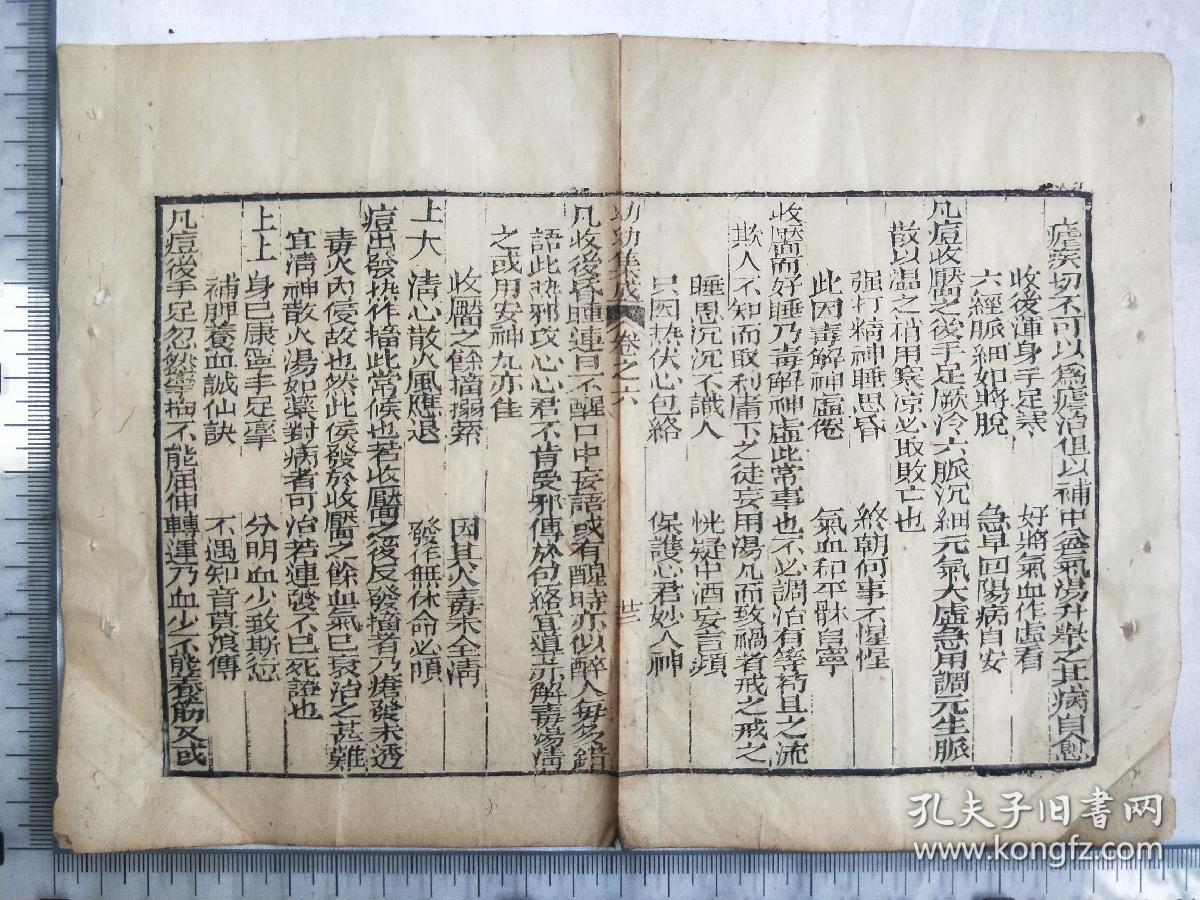 瘧疾切不可以為瘧治但以補中益氣湯升舉之其病自愈
收後渾身手足寒　好將氣血作虛看
六經脈細如將脫　急早回陽病自安
凡痘收靨之後手足厥冷六脈沉細元氣大虛急用調元生脈
散以溫之稍用寒涼必取敗亡也
強打精神睡思昏　終朝何事不惺惺
此因毒解神虛倦　氣血和平躰自寧
收靨而好睡乃毒解神虛此常事也不必調治有等苟且之流
欺人不知而取利庸下之徒妄用湯丸而致禍者戒之戒之
睡思沉沉不識人　恍疑中酒妄言頻
只因热伏心包絡　保護心君妙入神
幼幼集成　卷之六　廿三
凡收後昏睡連日不醒口中妄語或有醒時亦似醉人每多錯
語此热邪攻心心君不肯受邪傳於包絡宜導赤解毒湯清
之或用安神丸亦佳
收靨之餘搐搦縈　因其火毒未全清
上大　清心散火風應退　發作無休命必頃
痘出發热作搐此常候也若收靨之後反發搐者乃瘡發未透
毒火內侵故也然此侯發於收靨之餘血氣已衰治之甚難
宜清神散火湯如藥對病者可治若連發不已死證也
上上　身已康寧手足攣　分明血少致斯愆
補脾養血誠仙訣　不遇知音莫浪傳
凡痘後手足忽然攣拘不能屈伸轉運乃血少不能養筋又或
孔夫子旧书网
www.kongfz.com